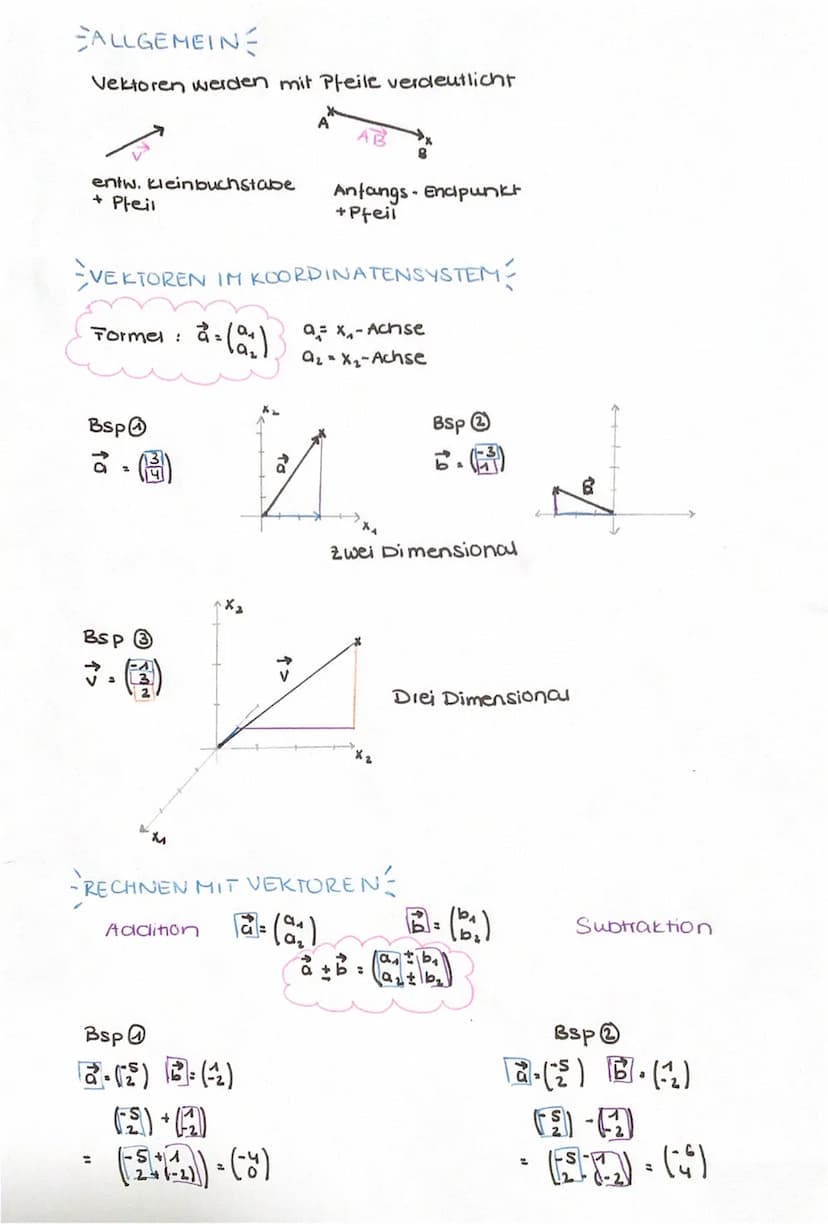 ALLGEMEIN
Vektoren werden mit Pfeile verdeutlicht
A
AB
B
v
entw. Kleinbuchstabe
+ Pfeil
Anfangs - Endpunkt
+ Pfeil
VEKTOREN IM KOORDINATENSYSTEM
Formel : a⃗ = (a₁ a₂)
a₁ = x₁-Achse
a₂ = x₂-Achse
Bsp ①
a⃗ = (3 4)
x₂
a⃗
x₁
Bsp ②
b⃗ = (-3 1)
b⃗
Zwei Dimensional
Bsp ③
v⃗ = (-1 3 2)
x₃
v⃗
x₂
x₁
Drei Dimensional
RECHNEN MIT VEKTOREN
Addition a⃗ = (a₁ a₂) b⃗ = (b₁ b₂) Subtraktion
a⃗ ± b⃗ = (a₁ ± b₁ a₂ ± b₂)
Bsp ①
a⃗ = (-5 2) b⃗ = (1 -2)
(-5 2) + (1 -2)
= (-5 + 1 2 + (-2)) = (-4 0)
Bsp ②
a⃗ = (-5 2) b⃗ = (1 -2)
(-5 2) - (1 -2)
= (-5 - 1 2 - (-2)) = (-6 4)